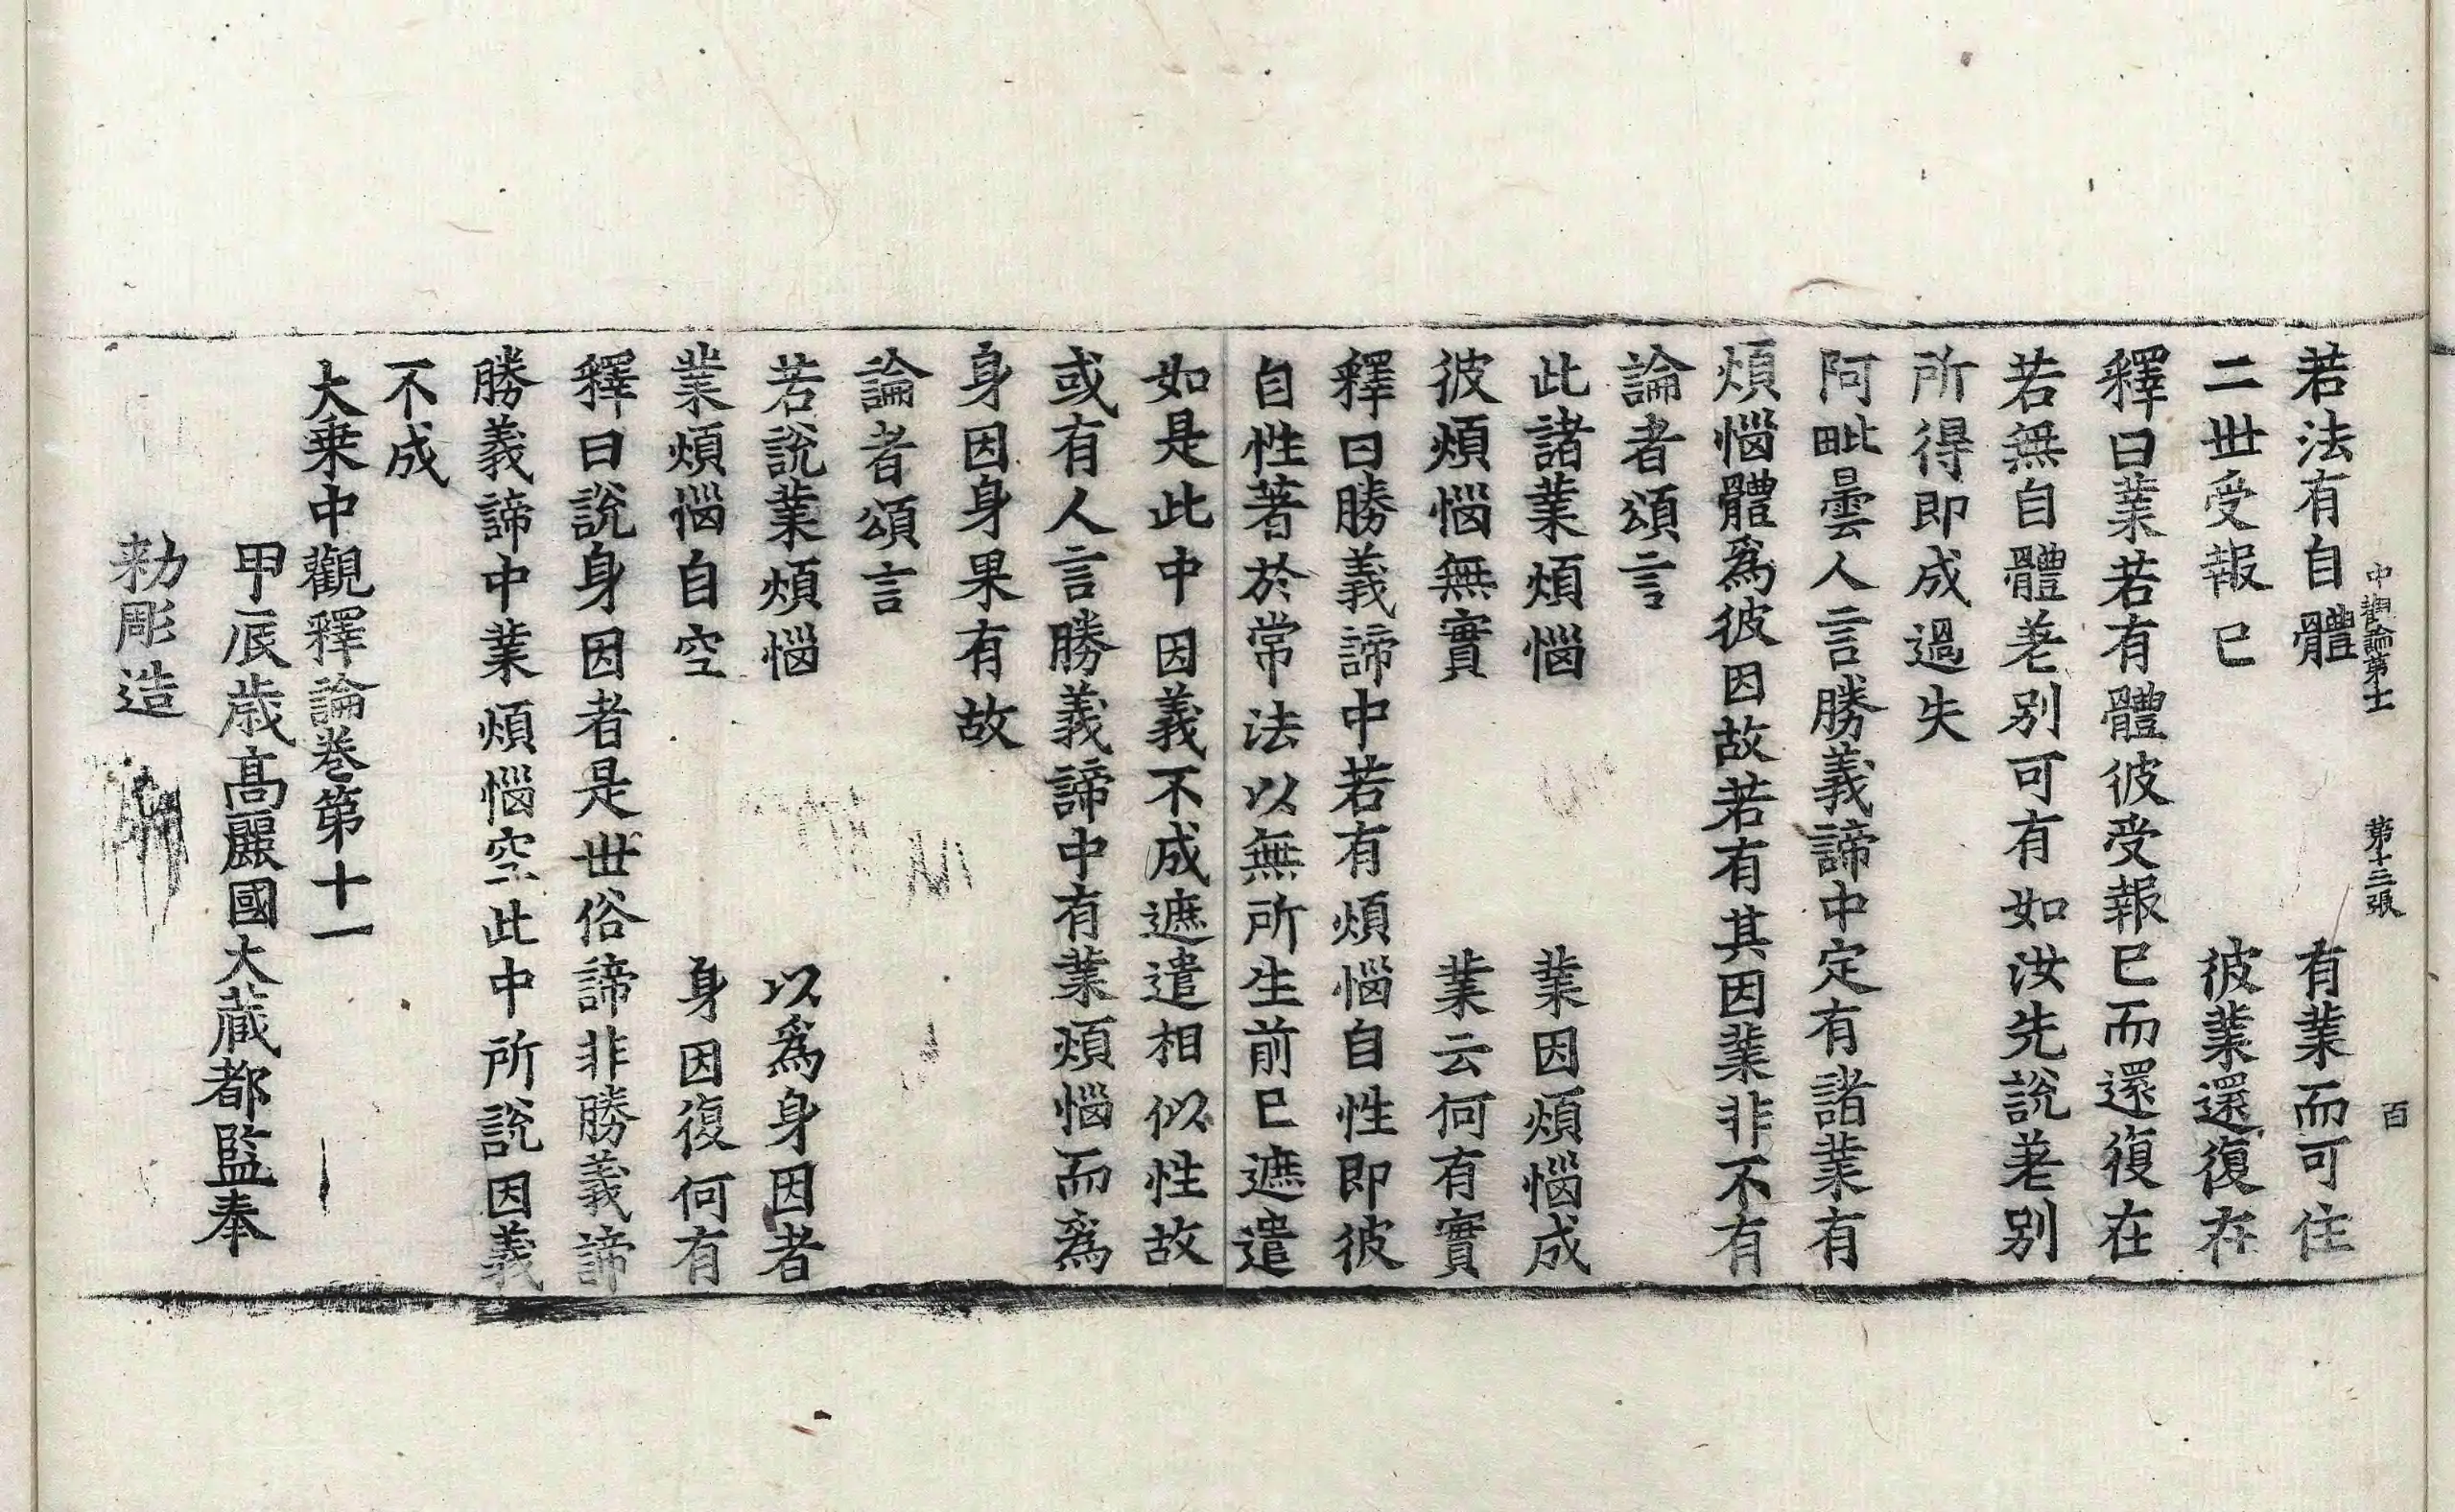 中觀論第十一 第十三張 百
若法有自體 有業而可住
二世受報已 彼業還復在
釋曰業若有體彼受報已而還復在
若無自體差別可有如汝先說差別
所得即成過失
阿毗曇人言勝義諦中定有諸業有
煩惱體爲彼因故若有其因業非不有
論者頌言
此諸業煩惱 業因煩惱成
彼煩惱無實 業云何有實
釋曰勝義諦中若有煩惱自性即彼
自性著於常法以無所生前已遮遣
如是此中因義不成遮遣相似性故
或有人言勝義諦中有業煩惱而爲
身因身果有故
論者頌言
若說業煩惱 以爲身因者
業煩惱自空 身因復何有
釋曰說身因者是世俗諦非勝義諦
勝義諦中業煩惱空此中所說因義
不成
大乗中觀釋論卷第十一
甲辰歳髙麗國大藏都監奉
勑彫造